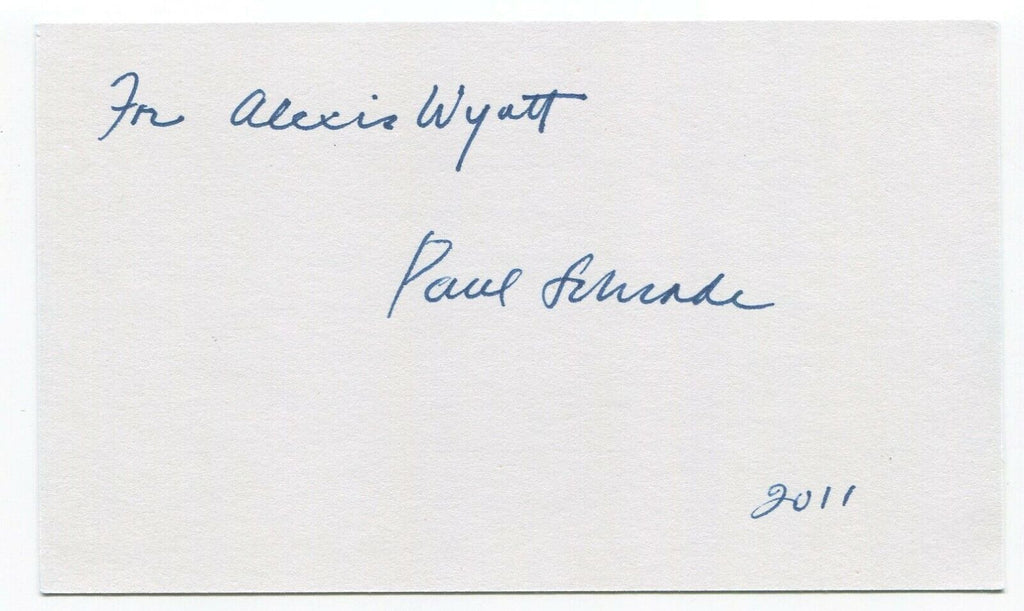 For Alexis Wyatt
Paul Schrade
2011